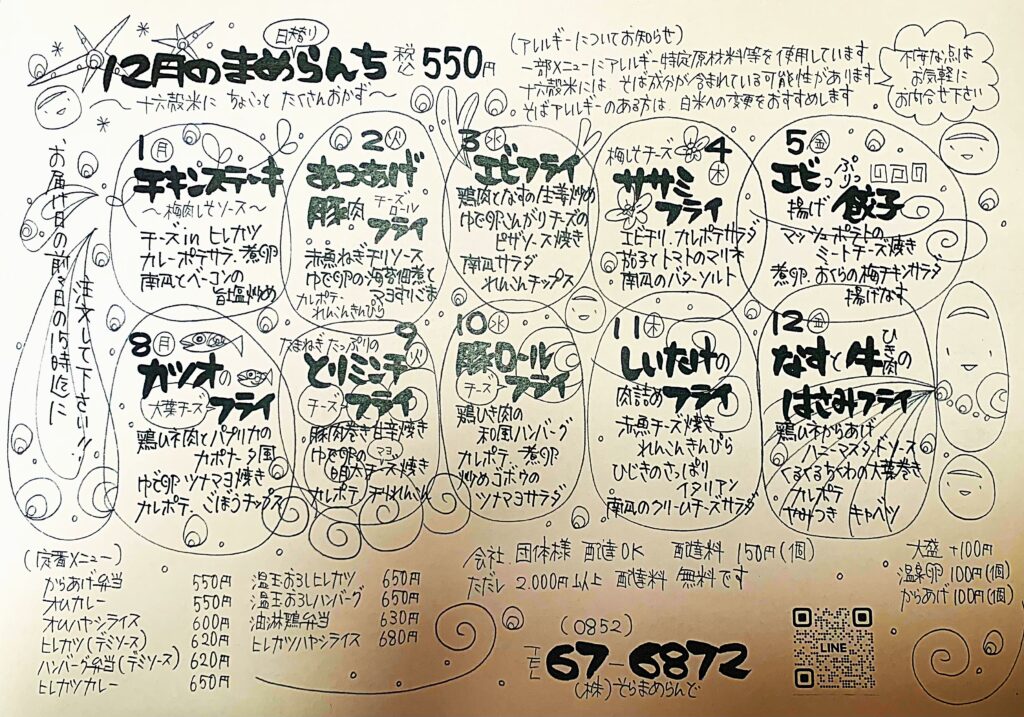 日替り
12月のまめらんち 税込 550円
～十六穀米に ちょこっと たくさんおかず～
(アレルギーについてお知らせ)
一部メニューにアレルギー特定原材料等を使用しています
十六穀米には そば成分が含まれている可能性があります
そばアレルギーのある方は 白米への変更をおすすめします
不安な点は
お気軽に
お問合せ下さい
お届け日の前々日の15時迄に
注文して下さい!!
1 月
チキンステーキ
～梅肉しそソース～
チーズin ヒレカツ
カレーポテサラ. 煮卵
南瓜とベーコンの
旨塩炒め
2 火
あつあげ
豚肉
チーズロール
フライ
赤魚ねぎチリソース
ゆで卵の海苔佃煮と
マヨすりごま
カルポテ.
れんこんきんぴら
3 水
エビフライ
鶏肉となすの生姜炒め
ゆで卵とんがりチーズの
ピザソース焼き
南瓜サラダ
れんこんチップス
4 木
梅しそチーズ
ササミ
フライ
エビチリ. カルポテサラダ
茄子とトマトのマリネ
南瓜のバターソルト
5 金
エビっぷりっ
揚げ 餃子
マッシュポテトの
ミートチーズ焼き
煮卵. おくらの梅チキンサラダ
揚げなす
8 月
カツオの
大葉チーズ フライ
鶏ひき肉とパプリカの
カポナータ風
ゆで卵ツナマヨ焼き
カルポテ. ごぼうチップス
9 火
たまねぎたっぷりの
とりミンチ
チーズ フライ
豚肉巻き甘辛焼き
ゆで卵の マヨ
明太チーズ焼き
カルポテ.
10 水
豚ロール
チーズ フライ
鶏ひき肉の
和風ハンバーグ
カルポテ. 煮卵
炒めゴボウの
ツナマヨサラダ
11 木
しいたけの
肉詰めフライ
赤魚チーズ焼き
れんこんきんぴら
ひじきのさっぱり
イタリアン
南瓜のクリームチーズサラダ
12 金
なすと牛ひき肉の
はさみフライ
鶏ひねからあげ
ハニーマスタードソース
くるくるちくわの大葉巻き
カルポテ
やみつき キャベツ
(定番メニュー)
からあげ弁当 550円
オムカレー 550円
オムハヤシライス 600円
ヒレカツ(デミソース) 620円
ハンバーグ弁当(デミソース) 620円
ヒレカツカレー 650円
温玉おろしヒレカツ 650円
温玉おろしハンバーグ 650円
油淋鶏弁当 630円
ヒレカツハヤシライス 680円
会社 団体様 配達OK 配達料 150円(個)
ただし 2,000円以上 配達料 無料です
大盛 +100円
温泉卵 100円(個)
からあげ 100円(個)
(0852)
TEL 67-6872
(株)そらまめらんど
LINE